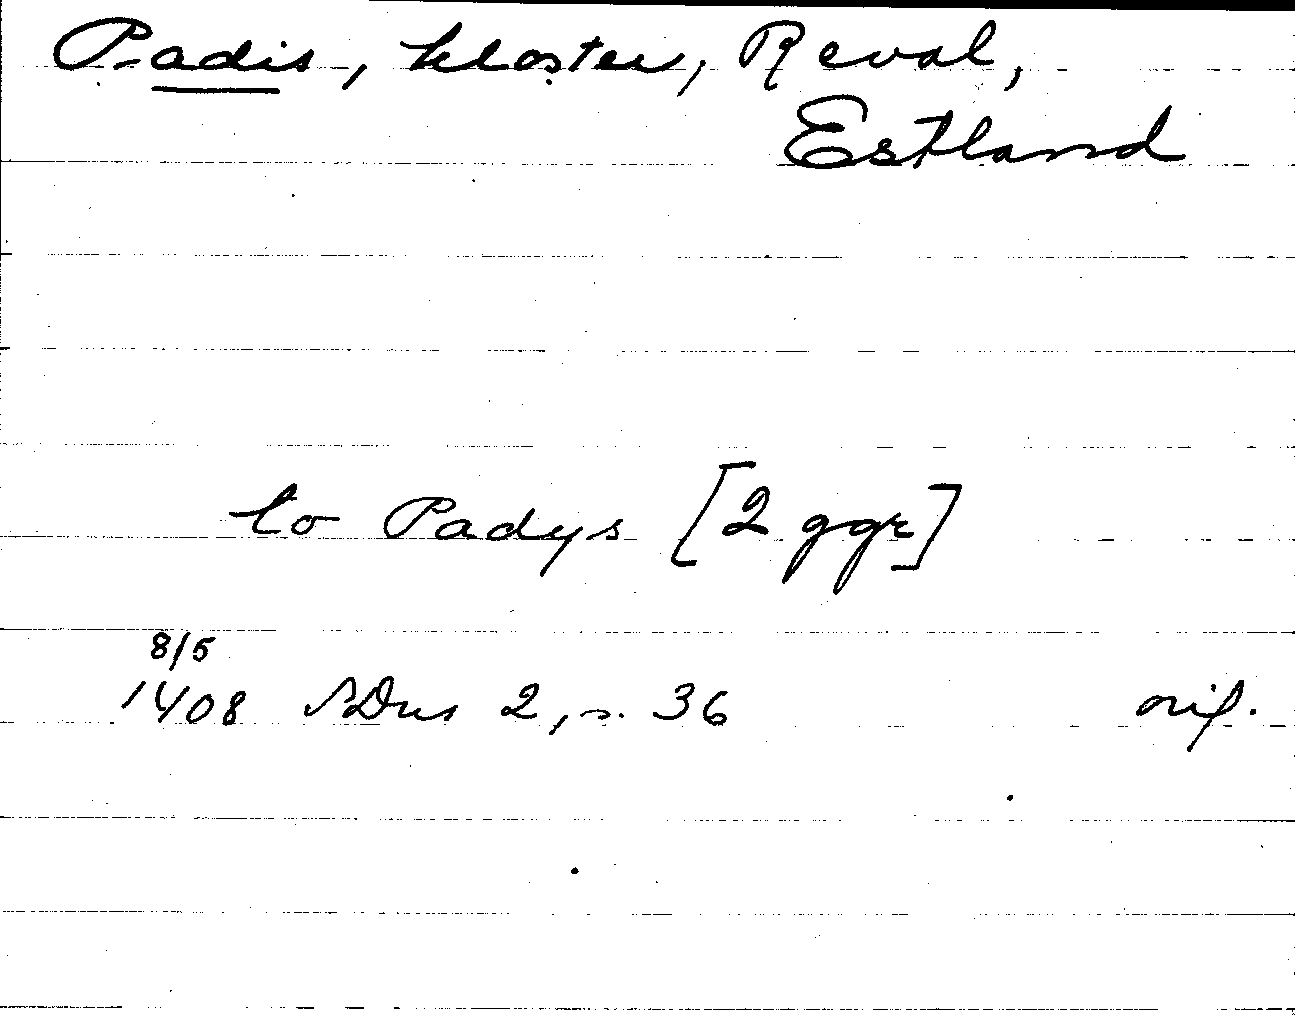 Padis, kloster, Reval,
Estland
to Padys [2 ggr]
8/5
1408 SDns 2, s. 36 orig.